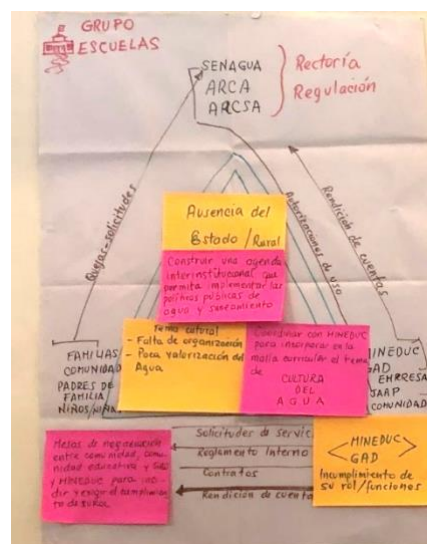 GRUPO
ESCUELAS
SENAGUA
ARCA
ARCSA
Rectoría
Regulación
Quejas-solicitudes
Autorizaciones de uso
Rendición de cuentas
Ausencia del
Estado / Rural
Construir una agenda
interinstitucional que
permita implementar las
políticas públicas de
agua y saneamiento
Tema cultural
- Falta de organización
- Poca valorización del
Agua
Coordinar con MINEDUC
para incorporar en la
malla curricular el tema
de
CULTURA
DEL
AGUA
FAMILIAS
COMUNIDAD
PADRES DE
FAMILIA
NIÑOS/NIÑA
MINEDUC
GAD
EMPRESA
JAAP
COMUNIDAD
Solicitudes de servic
Reglamento Interno
Contratos
Rendición de cuenta
Mesas de negociación
entre comunidad, comu
nidad educativa y GAD
y MINEDUC para
y exigir el cumplimien
to de su rol
MINEDUC
GAD
Incumplimiento de
su rol/funciones